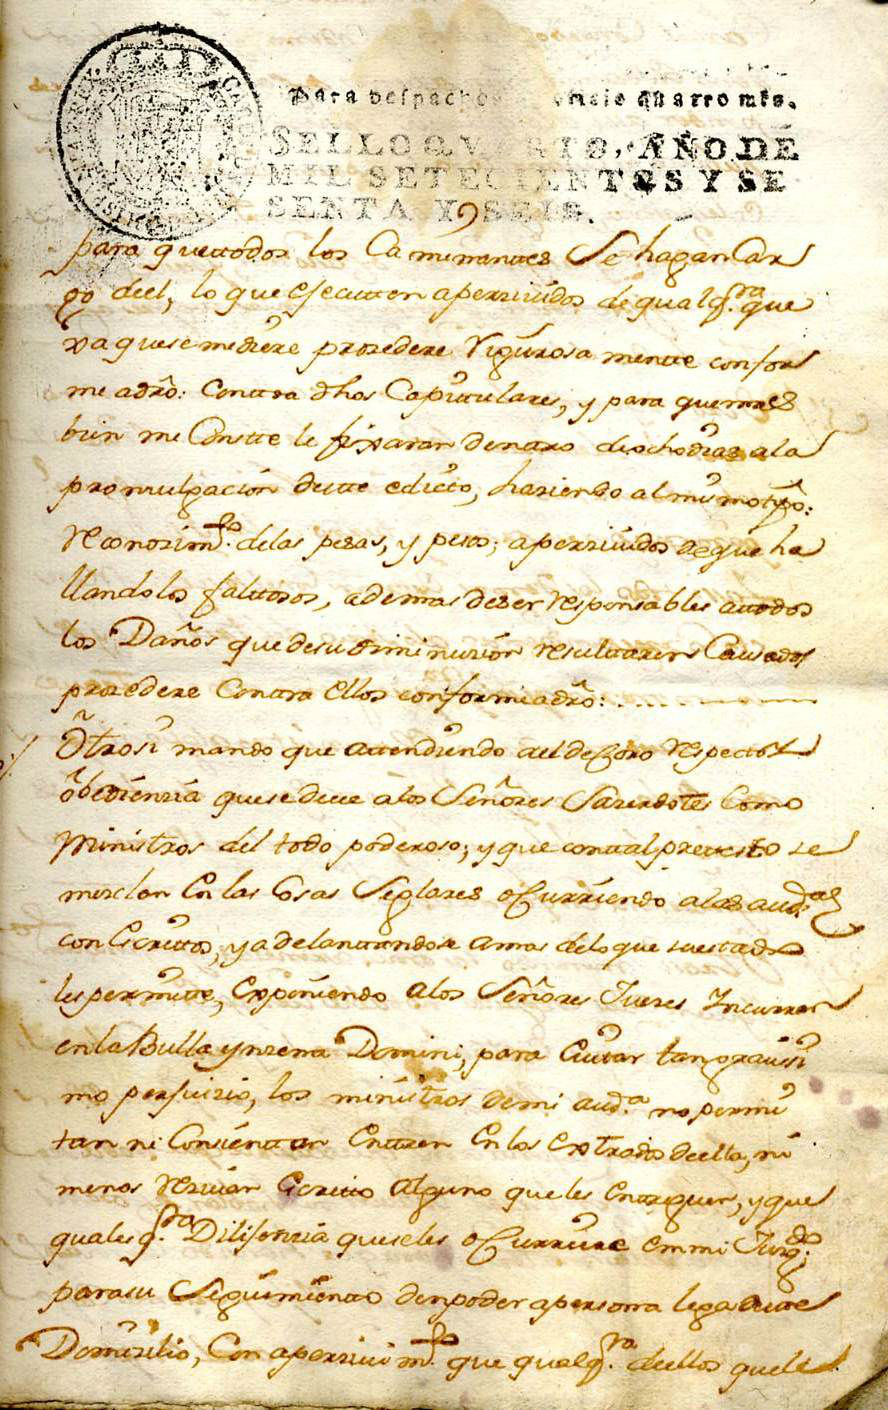 Para despachos de oficio quatro mrs.
SELLO QVARTO, AÑO DE
MIL SETECIENTOS Y SE
SENTA Y SEIS.
para quettodos los Caminanttes Se hagan Car
go del, lo que efecutten aperzivídos de qualq.ra que
xa quese mediere prozedere rigurosa mentte confor
me a dro: Conttra dhos Capittulares, y para que mas
bien me Constte le fixaran denttro de ocho dias a la
promulgación deste edicto, haziendo al mismo tpo:
reconozim.to de las pesas, y pesos; aperzividos de que ha
llandolos falttosos, ademas de ser responsables attodos
los Daños que de su diminuzión resulttaren Causados
prozedere Conttra ellos conforme a dro:
Ôtrosi mando que attendiendo al deCoro respecto Y
obedienzia que se deve a los Señores Sazerdotes Como
Ministros del todo poderoso; y que con tal prettesto se
mezclan En las Cosas Seglares oCurriendo a las aud.as
con Escrittos, y adelanttandose a mas de lo que su estado
les permitte, Exponiendo a los Señores Juezes Yncurrar
en la Bulla ynzena Domini, para Evitar tan gravissi
mo perjuizio, los ministros de mi aud.a no permi
tan ni Consienttan Entren En los Extrados de ella, ni
menos rezivan Escritto alguno que les Entreguen, y que
quales q.ra Dilijenzia que se les oCurriere en mi Juzg.do
para su Seguimientto den poder a persona lega de este
Domizilio, Con aperzivim.to que qualq.ra de ellos que le